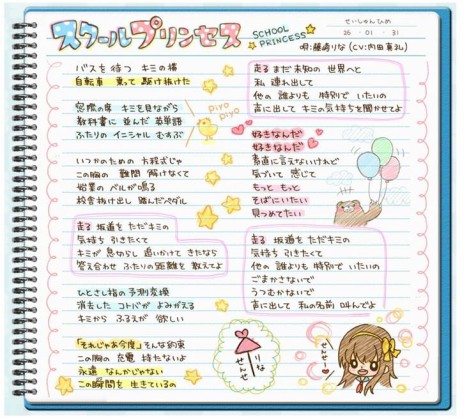 スクールプリンセス
SCHOOL PRINCESS
せいしゅんひめ
唄:藤崎りな(CV:内田真礼)
バスを待つ キミの横
自転車 乗って 駆け抜けた
窓際の席 キミを見ながら
教科書に 並んだ 英単語
ふたりの イニシャル むすぶ
piyo
piyo
いつかのための 方程式じゃ
この胸の 難問 解けなくて
始業の ベルが鳴る
校舎抜け出し 踏んだペダル
走る 坂道を ただキミの
気持ち 引きたくて
キミが 息切らし 追いかけて きたなら
答え合わせ ふたりの距離を 教えてよ
ひとさし指の 予測変換
消去した コトバが よみがえる
キミから ふるえが 欲しい
「それじゃあ今度」そんな約束
この胸の 充電 持たないよ
永遠 なんかじゃない
この瞬間を 生きているの
走る まだ未知の 世界へと
私 連れ出して
他の 誰よりも 特別で いたいの
声に出して キミの気持ちを聞かせてよ
好きなんだ
好きなんだ
素直に言えないけれど
気づいて 感じて
もっと もっと
そばにいたい
見つめてたい
走る 坂道を ただキミの
気持ち 引きたくて
他の 誰よりも 特別で いたいの
ごまかさないで
うつむかないで
声に出して 私の名前 叫んでよ
りな
せんせ
せんせー